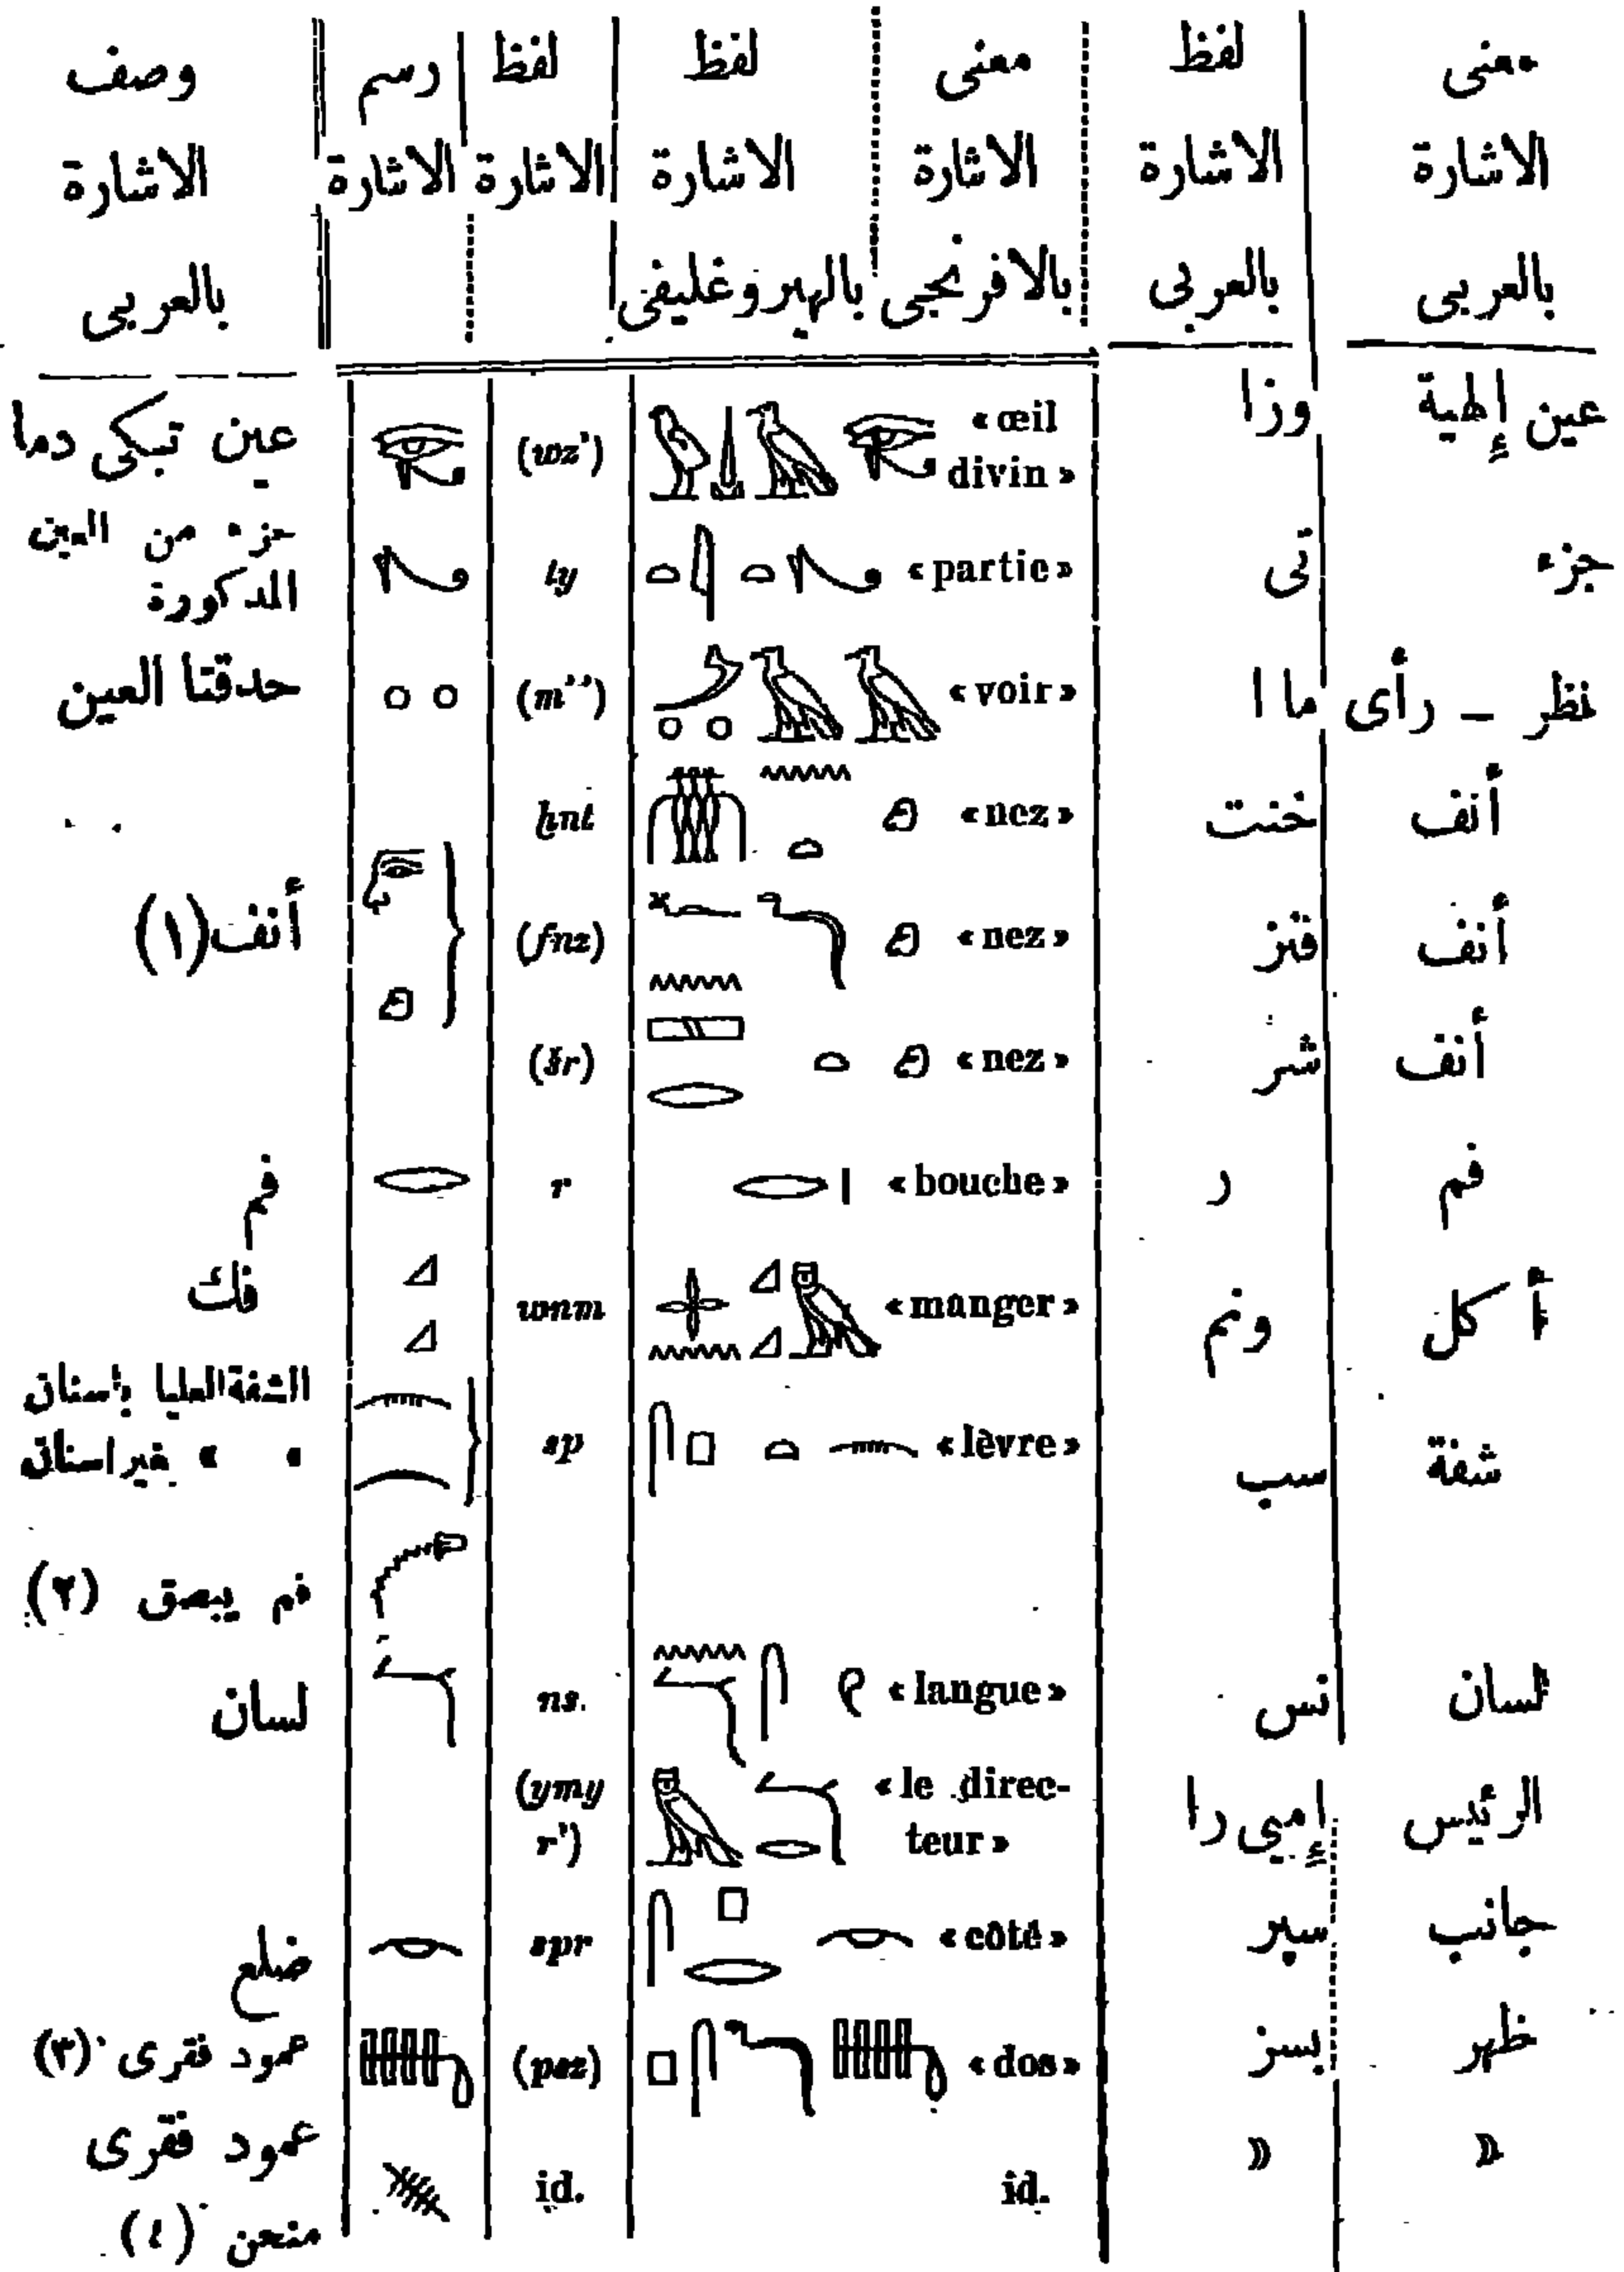 معنى الاشارة بالعربى | لفظ الاشارة بالعربى | معنى الاشارة بالافرنجى | لفظ الاشارة بالهيروغليفى | لفظ الاشارة | رسم الاشارة | وصف الاشارة بالعربى
عين إلهية | وزا | « œil divin » | (wz') | عين تبكى دما
جزء | تى | « partie » | ty | جزء من العين المذكورة
نظر – رأى | ما ا | « voir » | (m'') | حدقتا العين
أنف | خنت | « nez » | ḫnt
أنف | فنز | « nez » | (fnz) | أنف (١)
أنف | شر | « nez » | (šr)
فم | ر | « bouche » | r | فم
أكل | ونم | « manger » | wnm | فك
شفة | سب | « lèvre » | sp | الشفة العليا باسنان
« « غير اسنان
فم يبصق (٢)
لسان | نس | « langue » | ns. | لسان
الرئيس | إميى را | « le direc-teur » | (ymy r')
جانب | سپر | « côté » | spr | ضلع
ظهر | بسز | « dos » | (psz) | عمود فقرى (٣)
« | « | id. | id. | عمود فقرى منحن (٤)